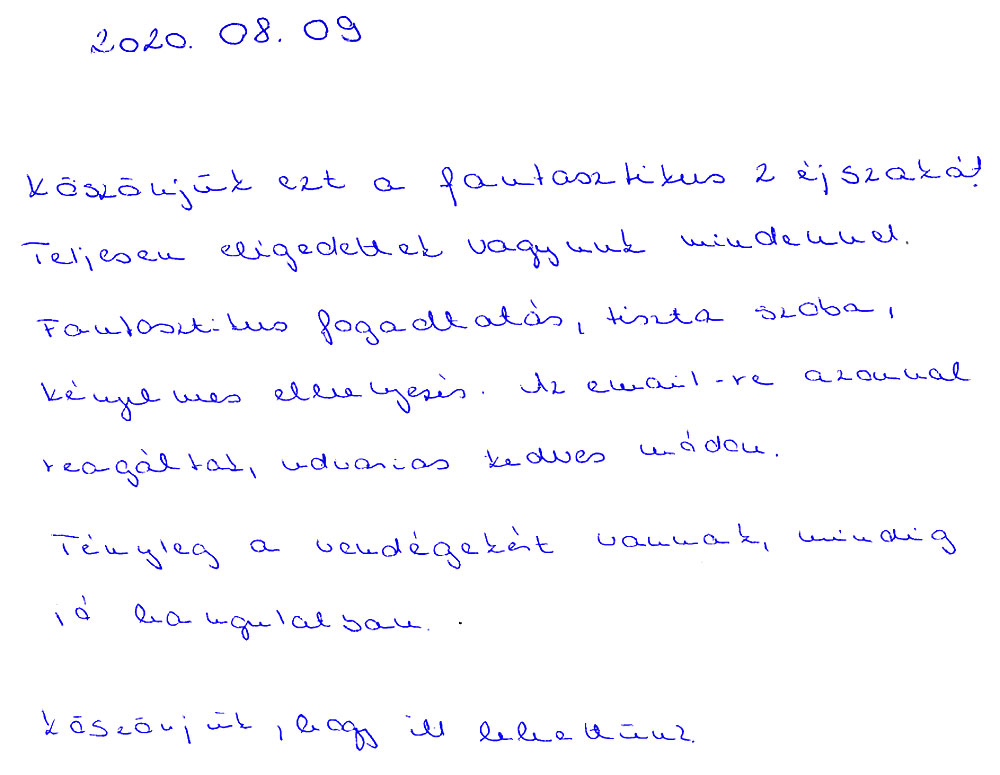 2020. 08. 09
Köszönjük ezt a fantasztikus 2 éjszakát!
Teljesen elégedettek vagyunk mindennel.
Fantasztikus fogadtatás, tiszta szoba,
kényelmes elhelyezés. Az email-re azonnal
reagáltak, udvarias kedves módon.
Tényleg a vendégekért vannak, mindig
jó hangulatban.
Köszönjük, hogy itt lehettünk.